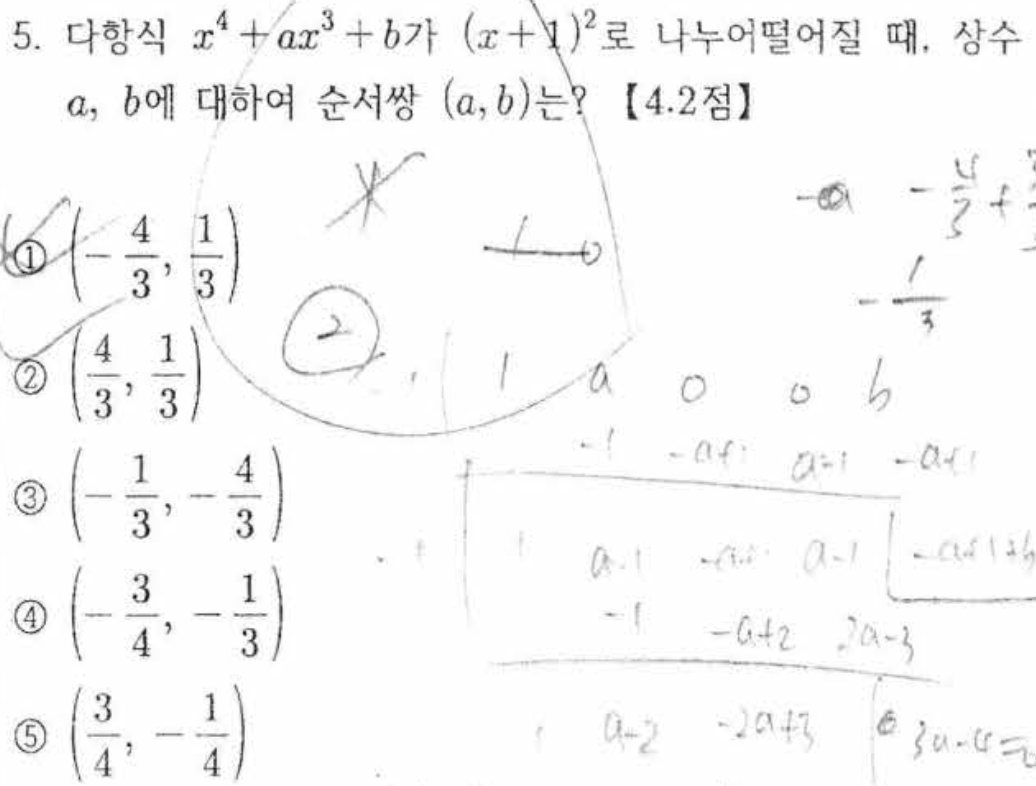 5. 다항식 x⁴+ax³+b가 (x+1)²로 나누어떨어질 때, 상수
a, b에 대하여 순서쌍 (a, b)는? 【4.2점】
① (-4/3, 1/3)
② (4/3, 1/3)
③ (-1/3, -4/3)
④ (-3/4, -1/3)
⑤ (3/4, -1/4)
2
-1/3
1 a 0 0 b
-1 -a+1 a-1 -a+1
a-1 -a+1 a-1 -a+1+b
-1 -a+2 2a-3
a-2 -2a+3 3a-4=0